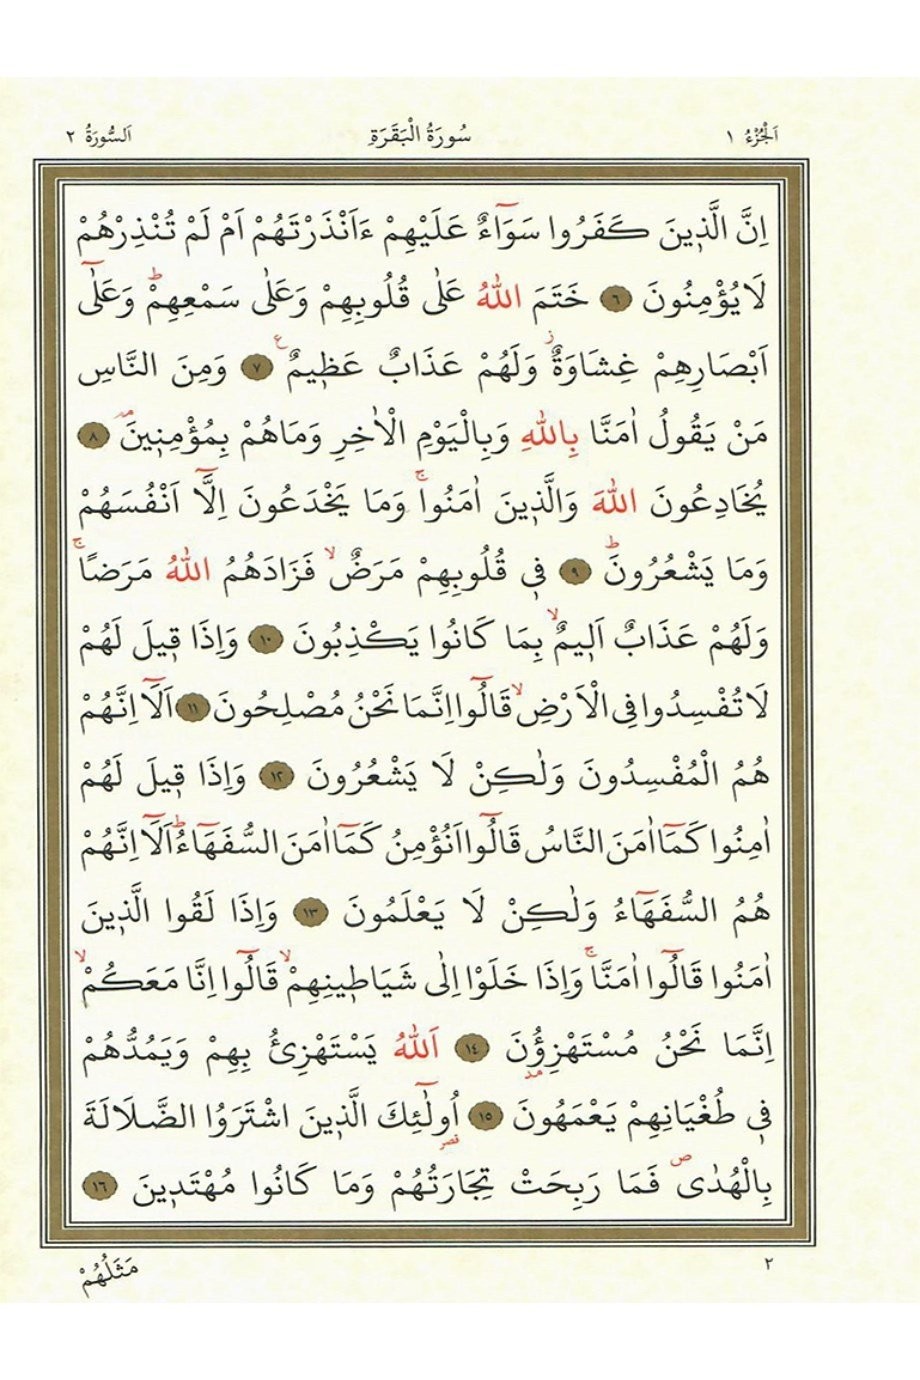 اَلْجُزْءُ ١ سُورَةُ الْبَقَرَةِ اَلسُّورَةُ ٢
اِنَّ الَّذ۪ينَ كَفَرُوا سَوَٓاءٌ عَلَيْهِمْ ءَاَنْذَرْتَهُمْ اَمْ لَمْ تُنْذِرْهُمْ
لَا يُؤْمِنُونَ ﴿٦﴾ خَتَمَ اللّٰهُ عَلٰى قُلُوبِهِمْ وَعَلٰى سَمْعِهِمْۜ وَعَلٰٓى
اَبْصَارِهِمْ غِشَاوَةٌۘ وَلَهُمْ عَذَابٌ عَظ۪يمٌ۟ ﴿٧﴾ وَمِنَ النَّاسِ
مَنْ يَقُولُ اٰمَنَّا بِاللّٰهِ وَبِالْيَوْمِ الْاٰخِرِ وَمَاهُمْ بِمُؤْمِن۪ينَۢ ﴿٨﴾
يُخَادِعُونَ اللّٰهَ وَالَّذ۪ينَ اٰمَنُواۚ وَمَا يَخْدَعُونَ اِلَّٓا اَنْفُسَهُمْ
وَمَا يَشْعُرُونَۜ ﴿٩﴾ ف۪ي قُلُوبِهِمْ مَرَضٌۙ فَزَادَهُمُ اللّٰهُ مَرَضًاۚ
وَلَهُمْ عَذَابٌ اَل۪يمٌۙ بِمَا كَانُوا يَكْذِبُونَ ﴿١٠﴾ وَاِذَا ق۪يلَ لَهُمْ
لَا تُفْسِدُوا فِي الْاَرْضِۙ قَالُٓوا اِنَّمَا نَحْنُ مُصْلِحُونَ ﴿١١﴾ اَلَٓا اِنَّهُمْ
هُمُ الْمُفْسِدُونَ وَلٰكِنْ لَا يَشْعُرُونَ ﴿١٢﴾ وَاِذَا ق۪يلَ لَهُمْ
اٰمِنُوا كَمَٓا اٰمَنَ النَّاسُ قَالُٓوا اَنُؤْمِنُ كَمَٓا اٰمَنَ السُّفَهَٓاءُۜ اَلَٓا اِنَّهُمْ
هُمُ السُّفَهَٓاءُ وَلٰكِنْ لَا يَعْلَمُونَ ﴿١٣﴾ وَاِذَا لَقُوا الَّذ۪ينَ
اٰمَنُوا قَالُٓوا اٰمَنَّاۚ وَاِذَا خَلَوْا اِلٰى شَيَاط۪ينِهِمْۙ قَالُٓوا اِنَّا مَعَكُمْۙ
اِنَّمَا نَحْنُ مُسْتَهْزِؤُ۫نَ ﴿١٤﴾ اَللّٰهُ يَسْتَهْزِئُ بِهِمْ وَيَمُدُّهُمْ
ف۪ي طُغْيَانِهِمْ يَعْمَهُونَ ﴿١٥﴾ اُو۬لٰٓئِكَ الَّذ۪ينَ اشْتَرَوُا الضَّلَالَةَ
بِالْهُدٰىۖ فَمَا رَبِحَتْ تِجَارَتُهُمْ وَمَا كَانُوا مُهْتَد۪ينَ ﴿١٦﴾
٢ مَثَلُهُمْ